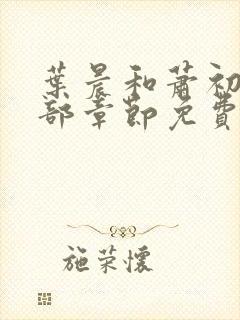 葉晨和蕭初
部章節免費
施荣懷